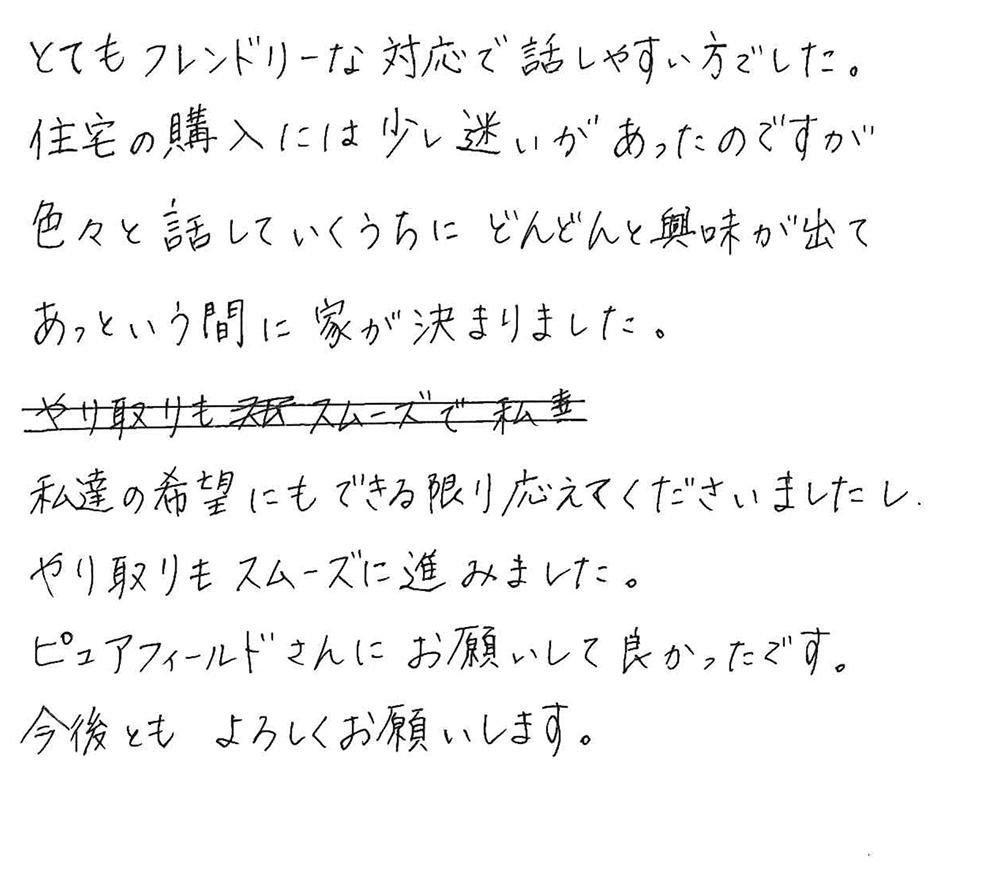 とてもフレンドリーな対応で話しやすい方でした。
住宅の購入には少し迷いがあったのですが
色々と話していくうちにどんどんと興味が出て
あっという間に家が決まりました。
やり取りも スムーズで 私
私達の希望にもできる限り応えてくださいましたし、
やり取りもスムーズに進みました。
ピュアフィールドさんにお願いして良かったです。
今後とも よろしくお願いします。